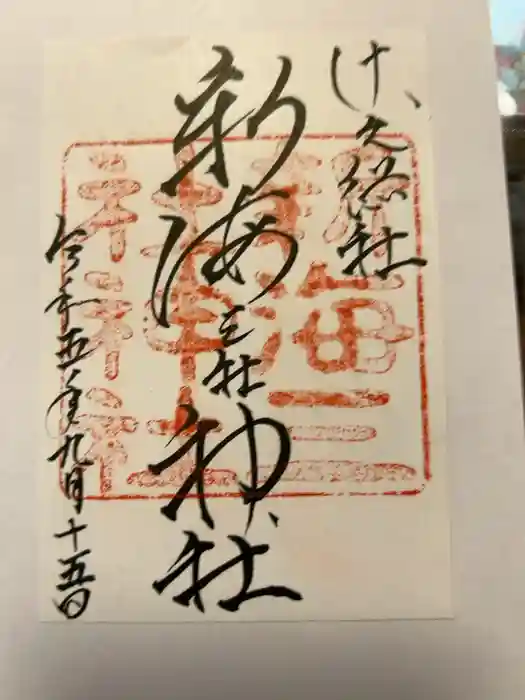 佐久総社
新海三社神社
令和五年九月十五日